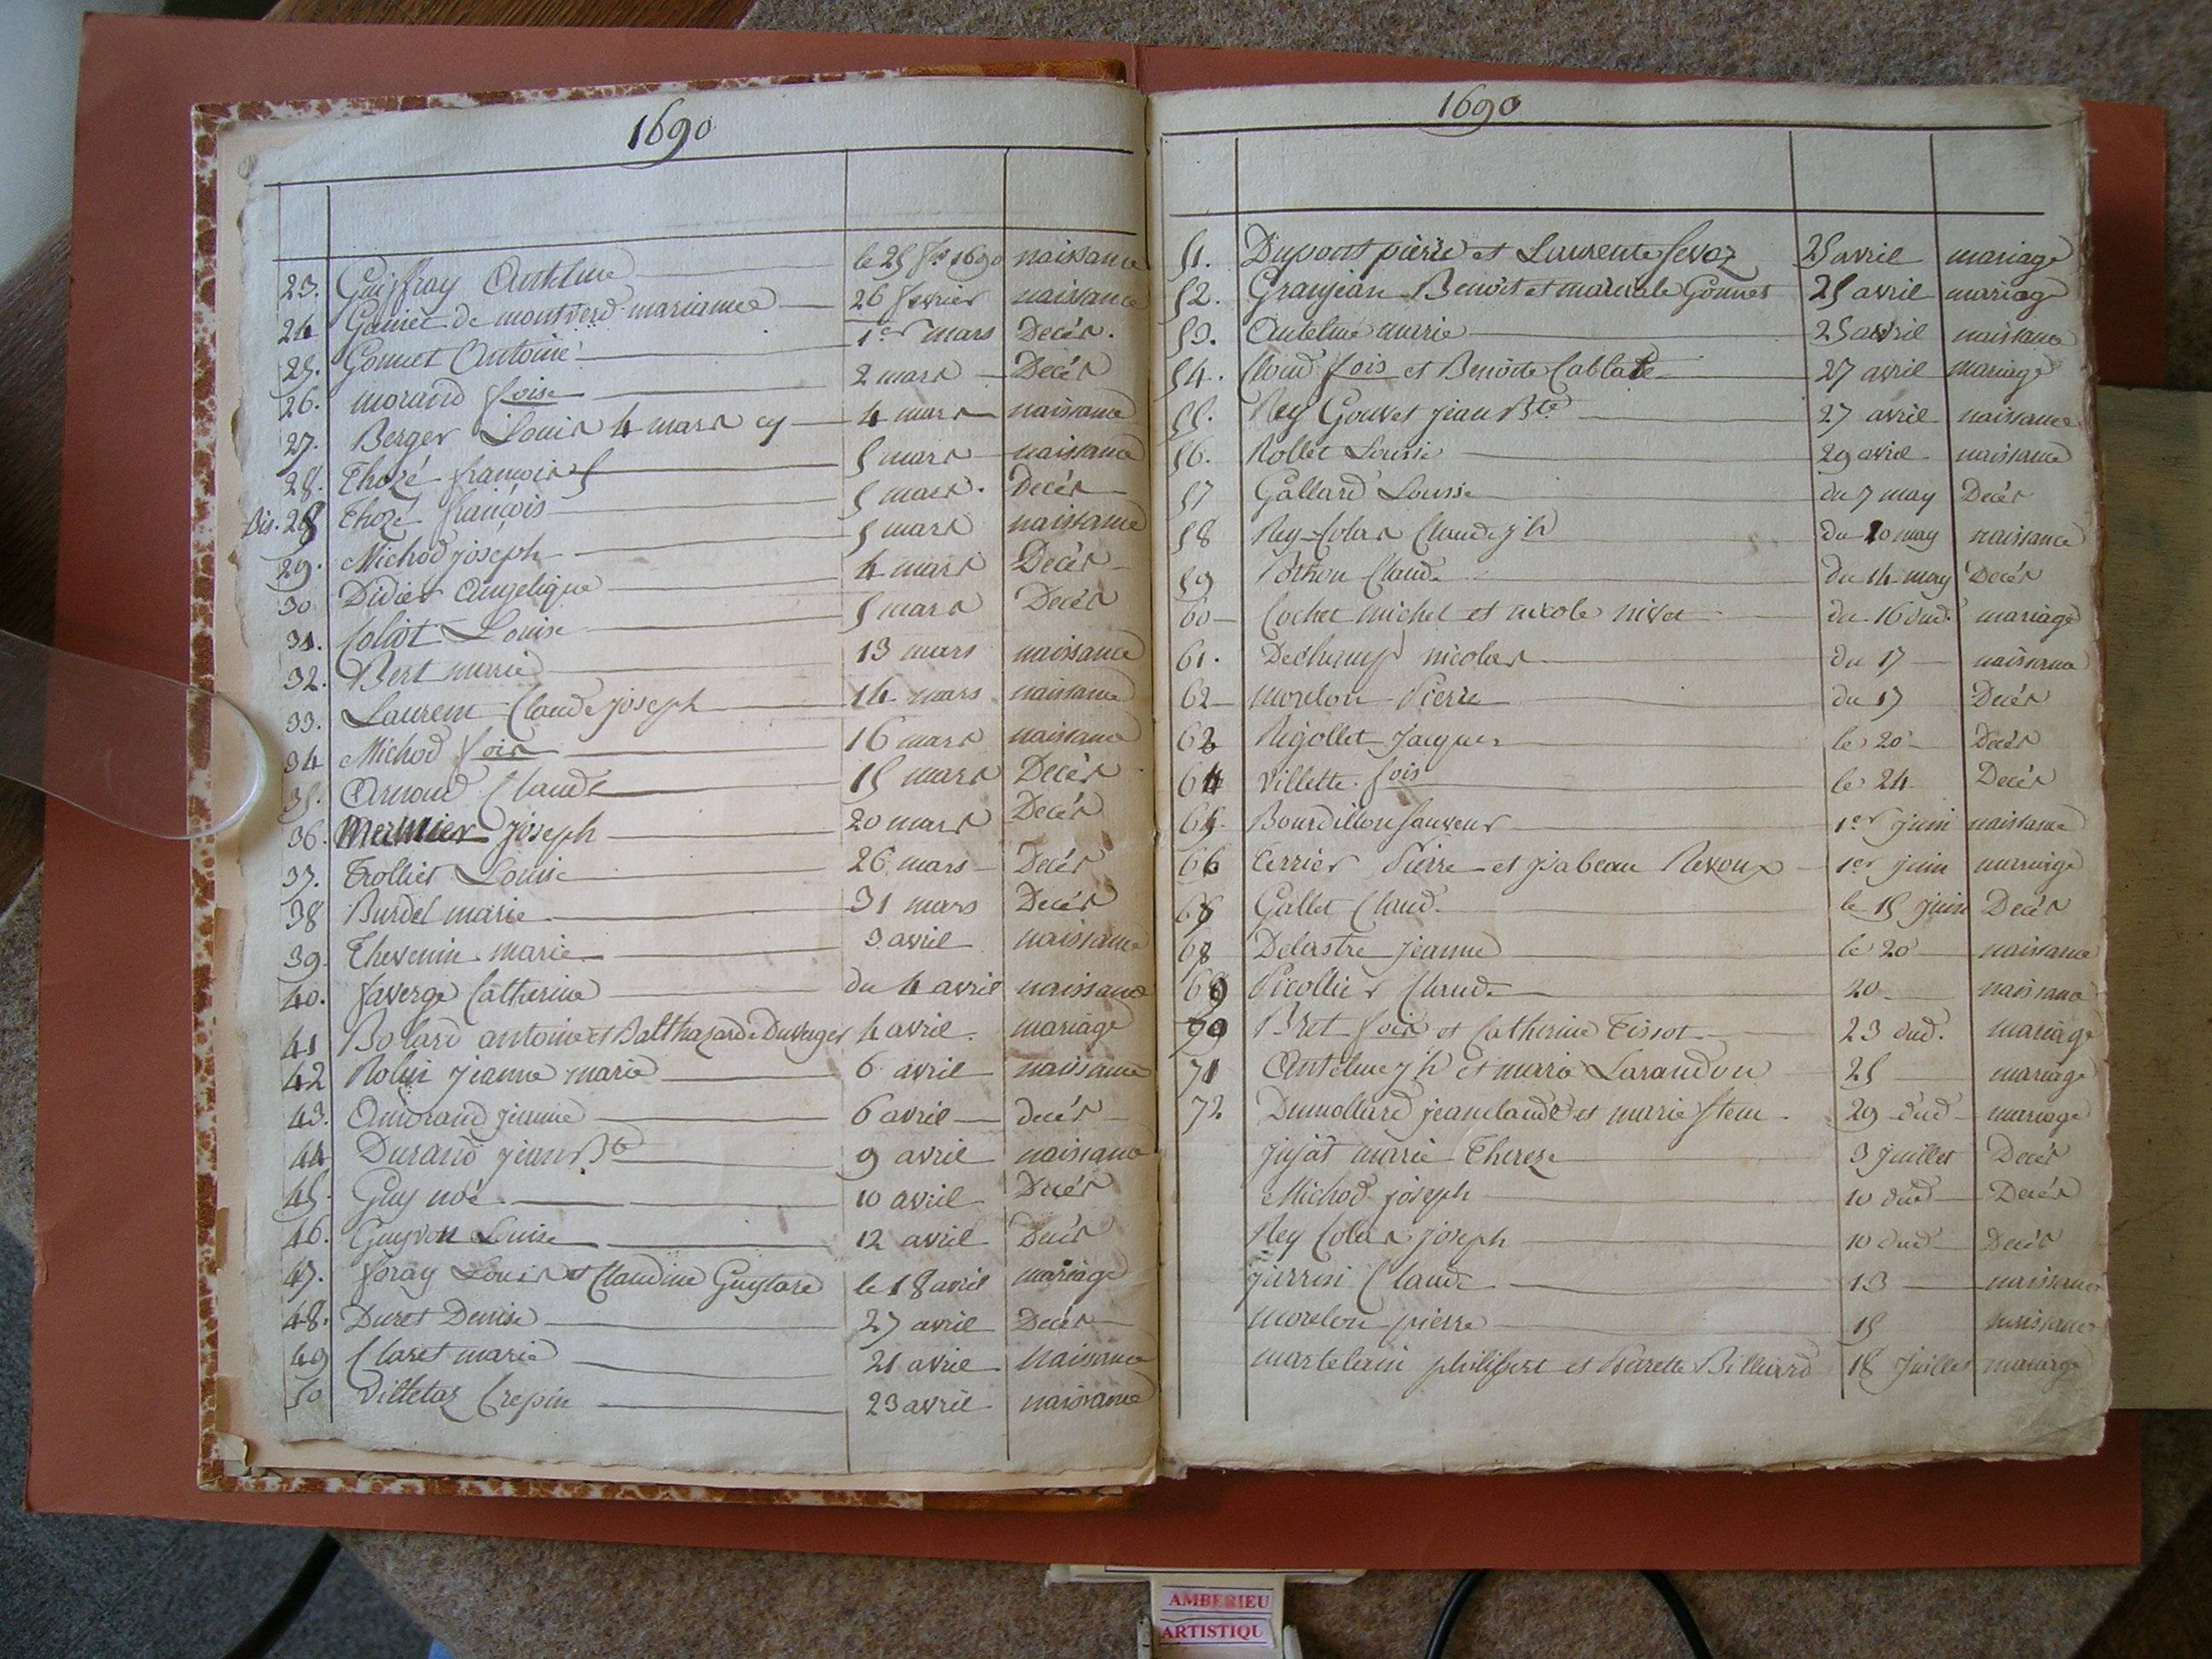 1690
23. Guiffray Antelme le 25 fer 1690 naissance
24 Gonnet de montverd marianne 26 fevrier naissance
25. Gonnet Antoine 1er mars Decés.
26. morand foise 2 mars Decés
27. Berger Louis 4 mars cy 4 mars naissance
28. Thozé francois 5 mars naissance
bis. 28 Thozé françois 5 mars. Decés
29. Michod joseph 5 mars naissance
30 Didier Angelique 4 mars Decés
31. Coliot Louise 5 mars Decés
32. Bert marie 13 mars naissance
33. Laurent Claude joseph 14 mars naissance
34 Michod fois 16 mars naissance
35. Arnoud Claude 15 mars Decés
36. Mermier joseph 20 mars Decés
37. Trollier Louise 26 mars Decés
38 Burdel marie 31 mars Decés
39. Thevenin marie 3 avril naissance
40. faverge Catherine du 4 avril naissance
41 Bolard antoine et Balthazarde Duverger 4 avril. mariage
42 Rolin jeanne marie 6 avril naissance
43. Amorand jeanne 6 avril decés
44 Durand jean Bte 9 avril naissance
45. Guy noé 10 avril Decés
46. Guyvon Louise 12 avril Decés
47. foray Louis et Claudine Guytare le 18 avril mariage
48. Duret Denise 27 avril Decés
49 Claret marie 21 avril Naissance
50 Villetaz Crepin 23 avril naissance
1690
51. Dupont pierre et Laurente Sevoz 25 avril mariage
52. Granjean Benoit et Gonnet 25 avril mariage
53. Antelme marie 25 avril naissance
54. Cloud fois et Benoite Cablate 27 avril mariage
55. Rey Gouvet jean Bte 27 avril naissance
56. Rollet Louise 29 avril naissance
57 Gallard Louise du 7 may Decés
58 Rey Colas Claude jh du 10 may naissance
59 Pothon Claude du 14 may Decés
60 Cochet michel et nicole nivet du 16 dud. mariage
61. Dechamp nicolas du 17 naissance
62 morelon Pierre du 17 Decés
63 Rigollet Jacques le 20 Decés
64 villette. fois le 24 Decés
65 Bourdillon Sauveur 1er juin naissance
66 Terrier Pierre et jsabeau Revoux 1er juin marriage
67 Gallet Claud. le 15 juin Decés
68 Delastre jeanne le 20 naissance
69 Picollier Claude 20 naissance
70 Bret fois et Catherine Tissot 23 dud. mariage
71 Antelme jh et marie Larandon 25 mariage
72 Dumollard jean claude et marie Stem 29 dud mariage
jujat marie Therese 3 juillet Decés
Michod joseph 10 dud Decés
Rey Colas joseph 10 dud Decés
Claude 13 naissance
morelon pierre 15 naissance
martelain philibert et Pierrette Billiard 18 juillet mariage
AMBERIEU
ARTISTIQU